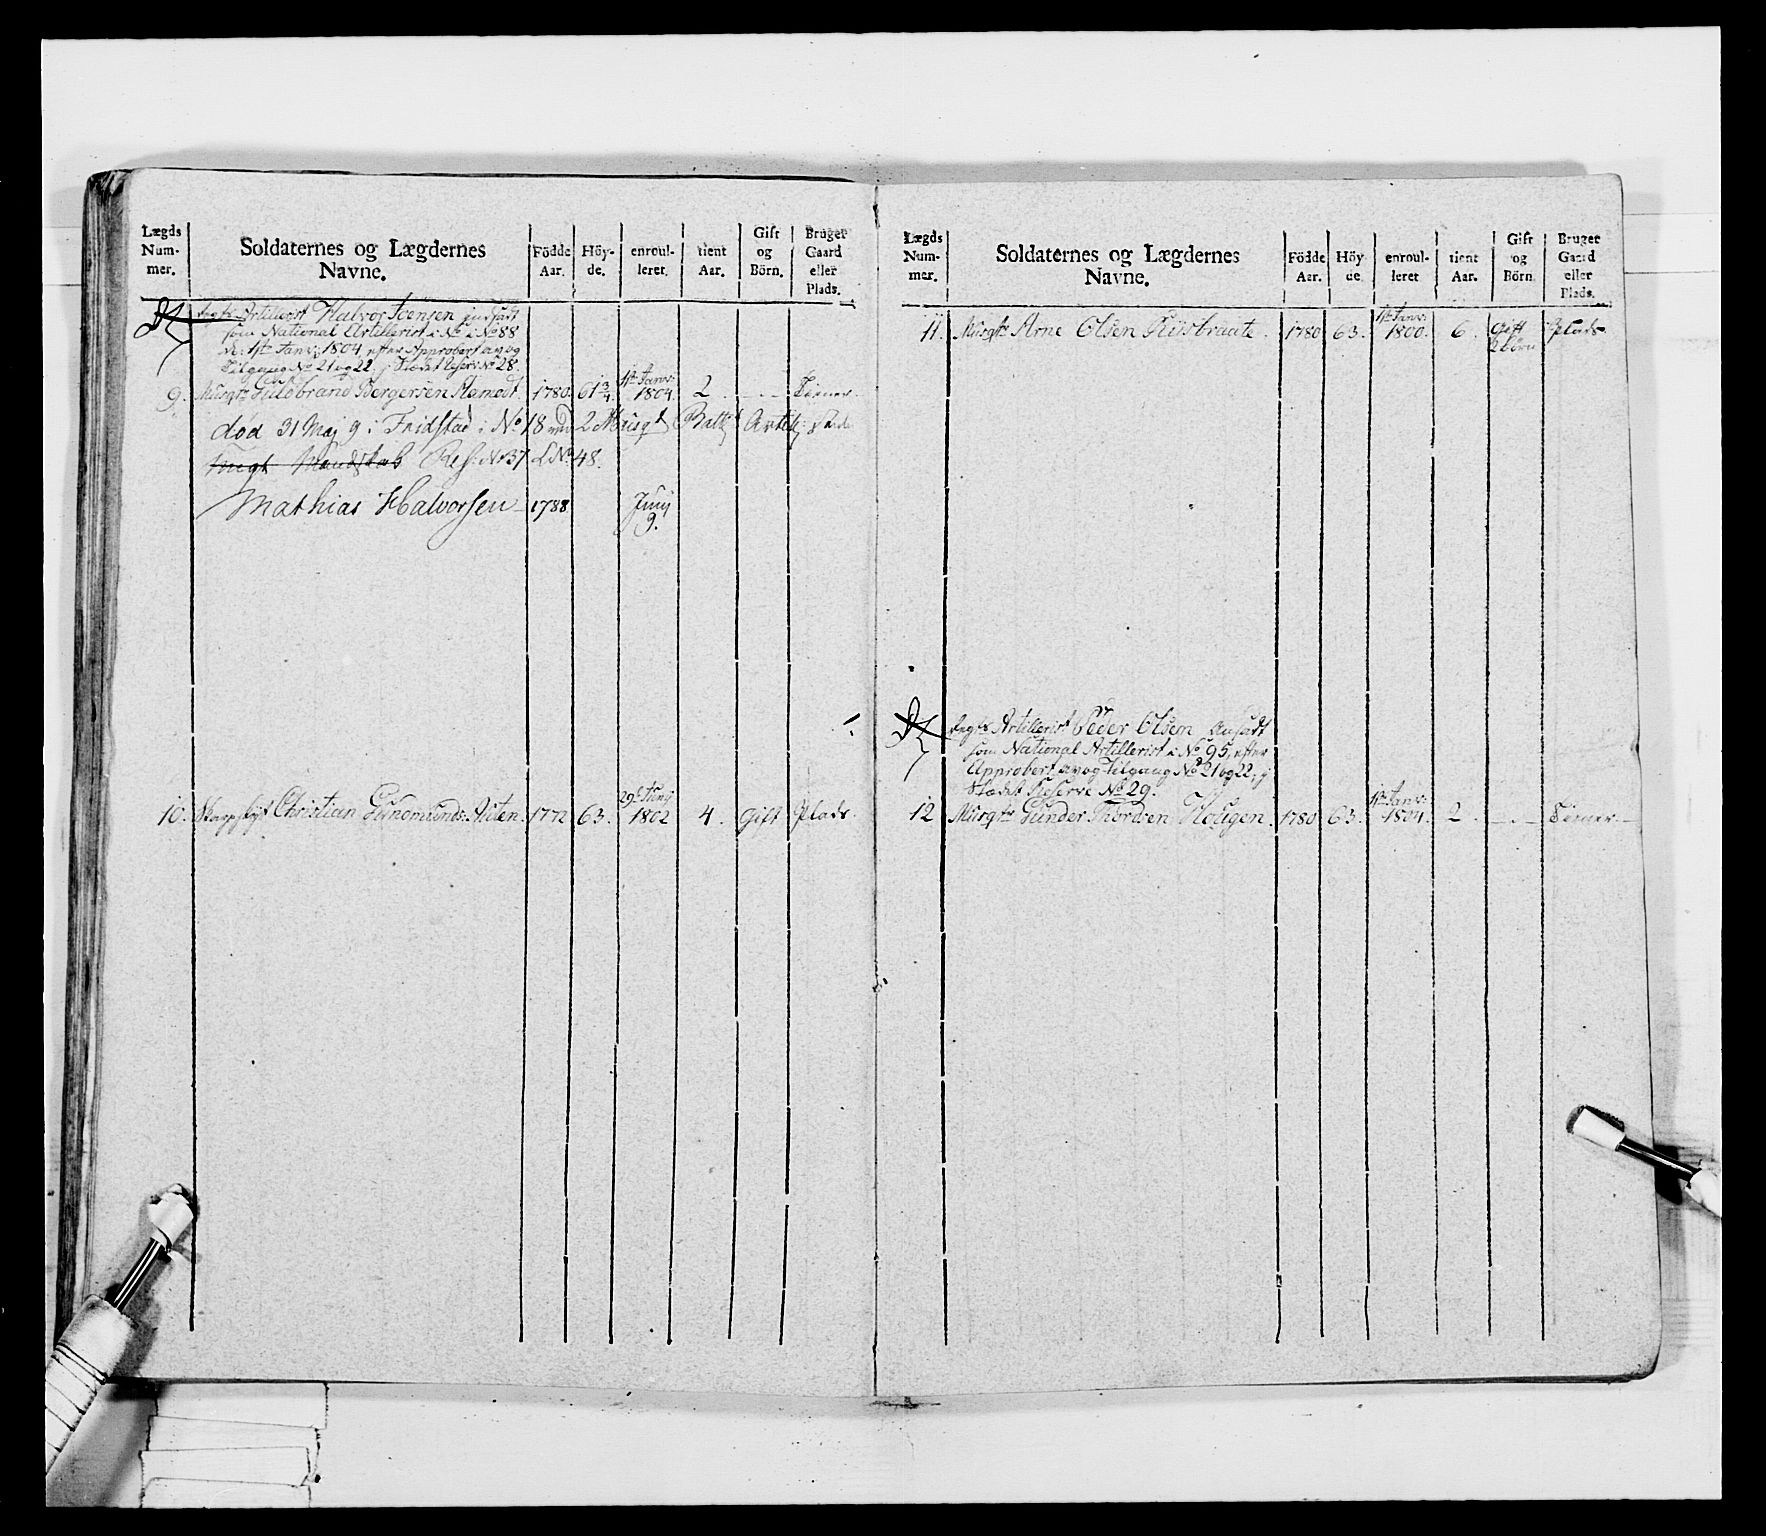 Lægds Num- mer. Soldaternes og Lægdernes Navne. Födde Aar. Höy- de. enroul- leret. tient Aar. Gift og Börn. Bruger Gaard eller Plads.
Artillerist Halvor Joensen indsadt
som National Artillerist i No 88
1ste Janv: 1804 efter Approbert av og
Tilgang No 21 og 22. j Stædet Reserv No 28.
9. Musqtr Hildebrand Børgersen 1780. 61 3/4. 1ste Janv: 1804. 2. - . - Tiener.
død 31 Maj 9 i Fridstad i No 18 ved 2 Musqt Batt Artil:
Mandskab Res: No 37 L No 48.
Mathias Halvorsen 1788 Junij 9.
10. Skarpskyt Christian Gundmunds. 1772 63. 29de Junij 1802 4. Gift Plads.
Lægds Num- mer. Soldaternes og Lægdernes Navne. Födde Aar. Höy de. enroul- leret tient Aar. Gift og Börn. Bruger Gaard eller Plads.
11. Musqtr Arne Olsen 1780 63. 1ste Janv: 1800. 6. Gift 2 börn Plads
Regts Artillerist Peder Olsen Ansadt
som National Artillerist i No 95, efter
Approbert av og Tilgang No 21 og 22, j
Stædet Reserve No 29.
12 Musqtr Gunder Thordsen Hougen. 1780 63. 1ste Janv: 1804. 2. - . - Tiener.